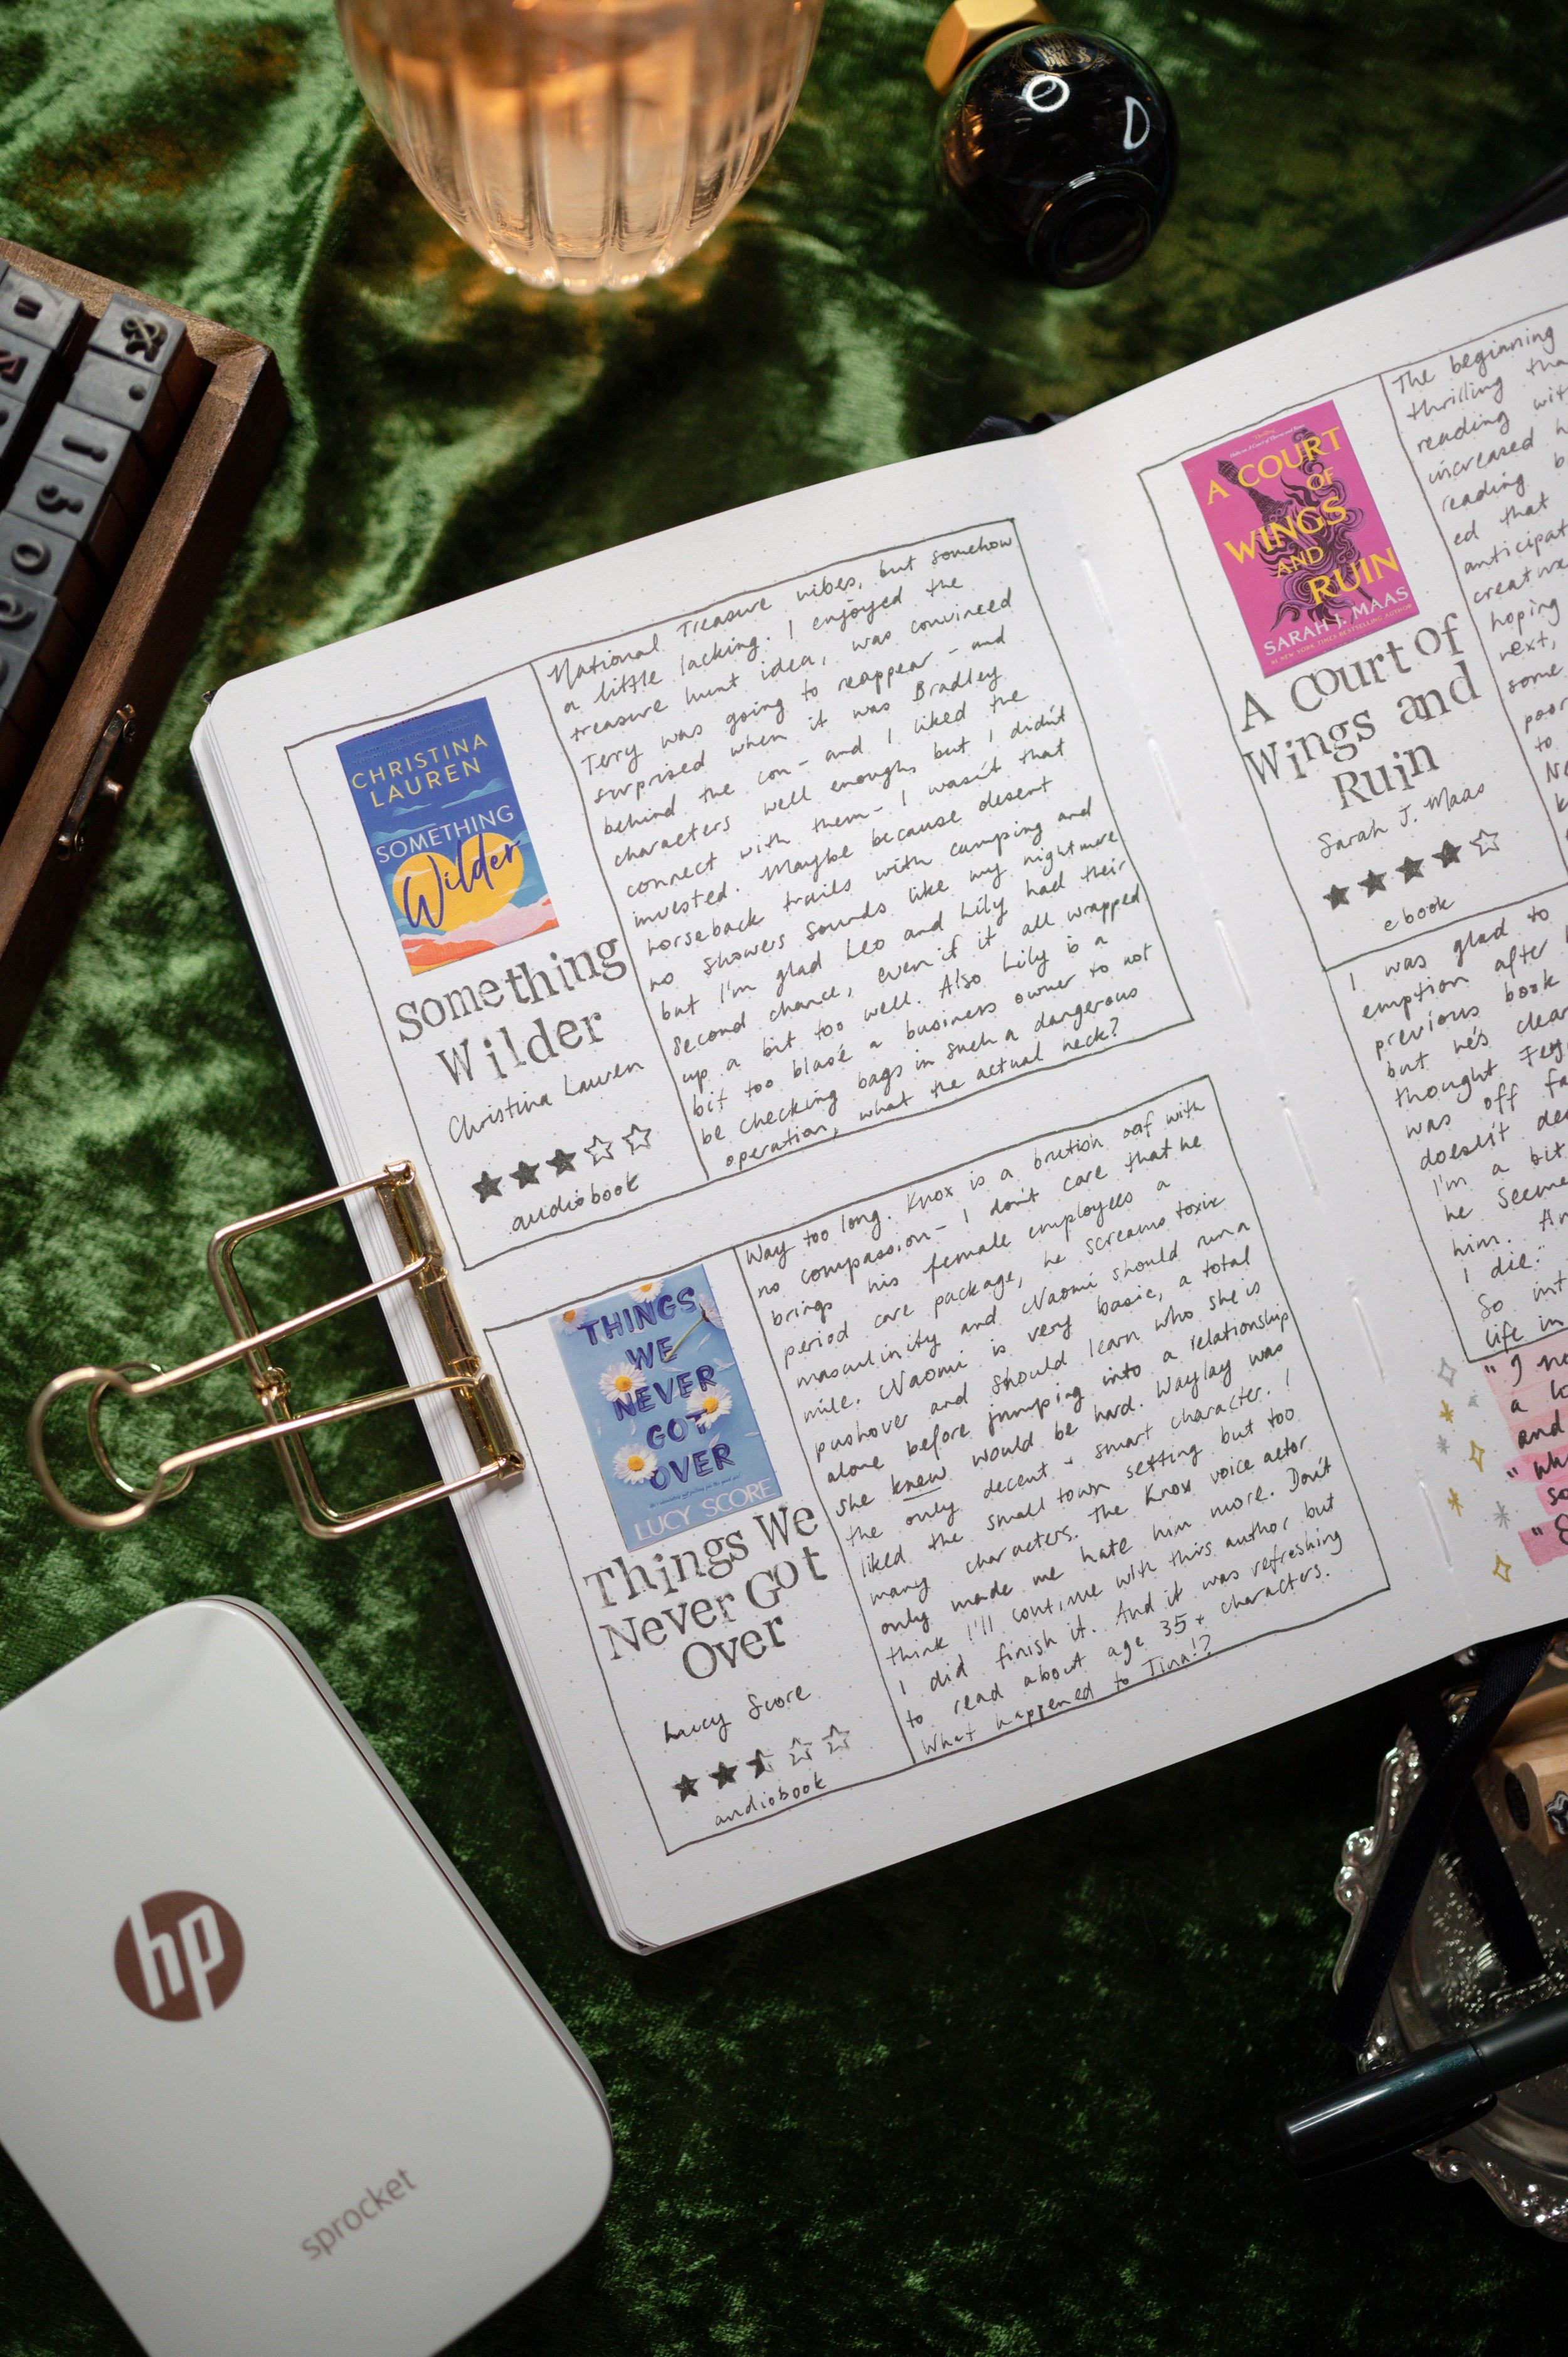 CHRISTINA
LAUREN
SOMETHING
Wilder
Something
Wilder
Christina Lauren
audiobook
National Treasure vibes, but somehow
a little lacking. I enjoyed the
treasure hunt idea, was convinced
Terry was going to reappear - and
surprised when it was Bradley
behind the con - and I liked the
characters well enough, but I didn't
connect with them - I wasn't that
invested. Maybe because desert
horseback trails with camping and
no showers sounds like my nightmare
but I'm glad Leo and Lily had their
second chance, even if it all wrapped
up a bit too well. Also Lily is a
bit too blasé a business owner to not
be checking bags in such a dangerous
operation, what the actual heck?
THINGS
WE
NEVER
GOT
OVER
LUCY SCORE
Things We
Never Got
Over
Lucy Score
audiobook
Way too long. Knox is a brutish oaf with
no compassion - I don't care that he
brings his female employees a
period care package, he screams toxic
masculinity and Naomi should run a
mile. Naomi is very basic, a total
pushover and should learn who she is
alone before jumping into a relationship
she knew would be hard. Waylay was
the only decent + smart character. I
liked the small town setting but too
many characters. The Knox voice actor
only made me hate him more. Don't
think I'll continue with this author but
I did finish it. And it was refreshing
to read about age 35+ characters.
What happened to Tina!?
A COURT
OF
WINGS
AND
RUIN
SARAH J. MAAS
#1 NEW YORK TIMES BESTSELLING AUTHOR
A Court of
Wings and
Ruin
Sarah J. Maas
ebook
The beginning
thrilling
reading
increased
reading
ed that
hoping
next,
some
poor
to
I was glad to
emption after
previous book
but he's
thought
was off
doesn't
I'm a bit
he
him.
I die."
So
life in
"I
a
and
"
so
"
hp
sprocket